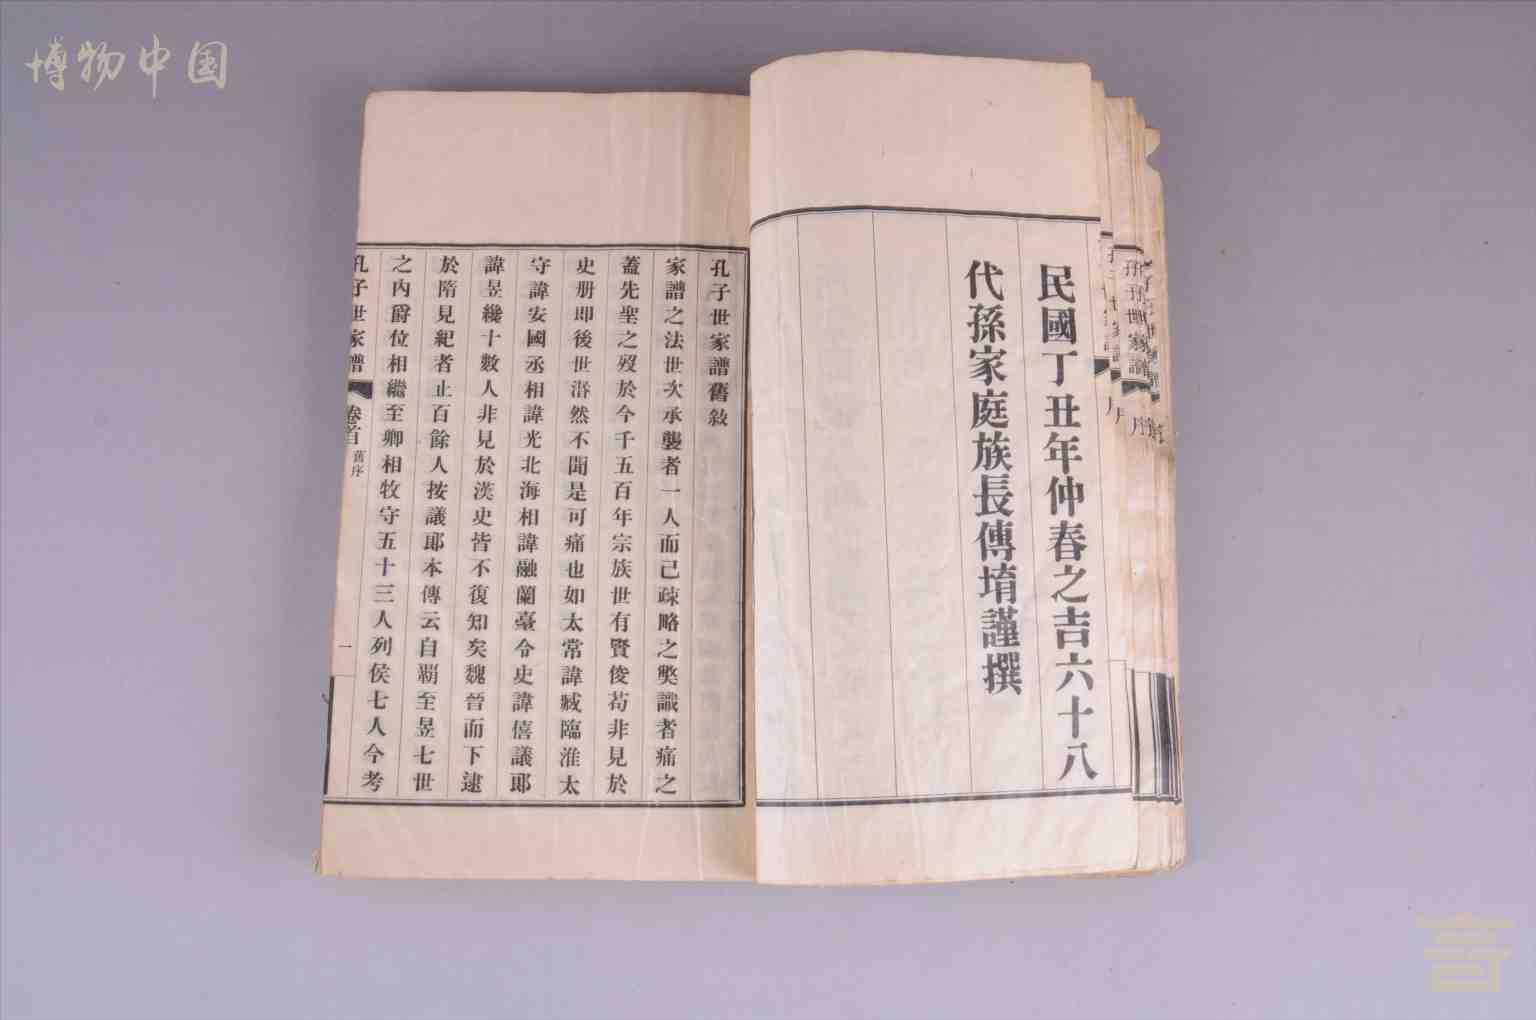 博物中国
民國丁丑年仲春之吉六十八
代孫家庭族長傳堉謹撰
孔子世家譜舊敘
家譜之法世次承襲者一人而己疎略之獘識者痛之
蓋先聖之歿於今千五百年宗族世有賢俊苟非見於
史册即後世湣然不聞是可痛也如太常諱臧臨淮太
守諱安國丞相諱光北海相諱融蘭臺令史諱僖議郎
諱昱纔十數人非見於漢史皆不復知矣魏晉而下逮
於隋見紀者止百餘人按議郎本傳云自覇至昱七世
之内爵位相繼至卿相牧守五十三人列侯七人今考
孔子世家譜 卷首 舊序 一